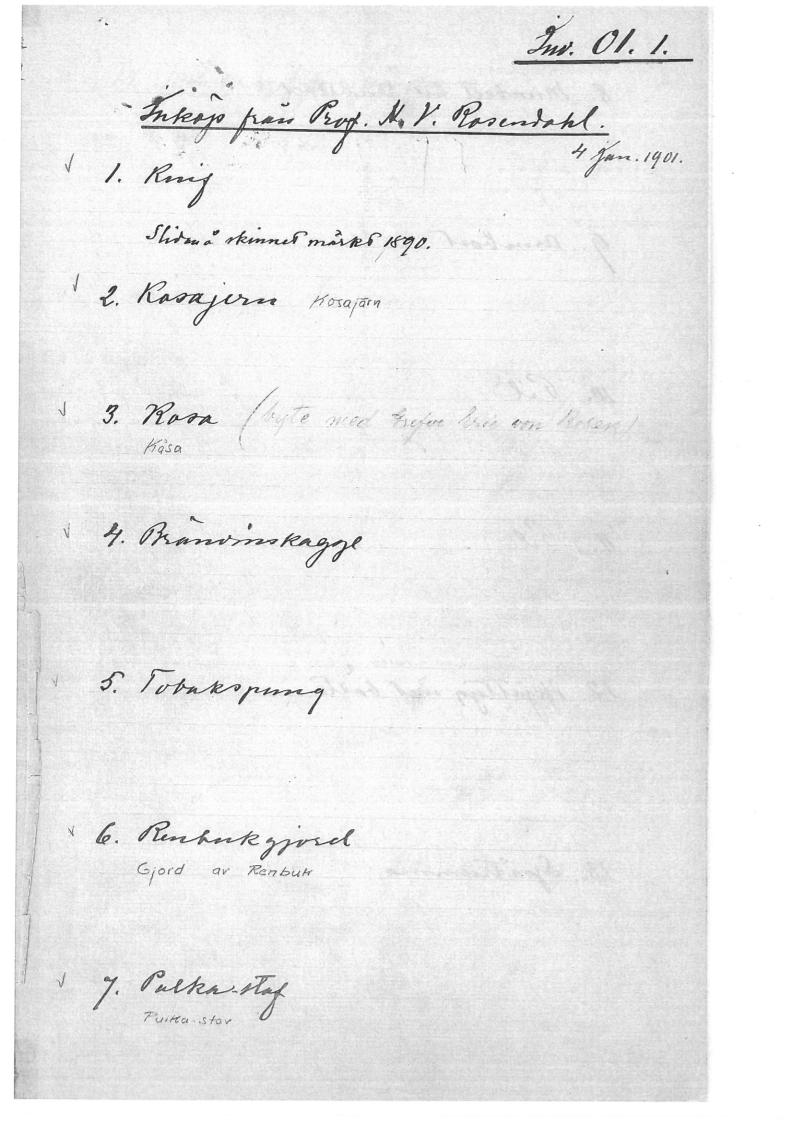 Inv. 01. 1.
Inköp från Prof. H. V. Rosendahl.
4 Jan. 1901.
1. Knif
skinnet märkt 1890.
2. Kosajern Kosajärn
3. Kosa (byte med Grefve Eric von Rosen)
Kåsa
4. Brännvinskagge
5. Tobakspung
6. Renbukgjord
Gjord av Renbuk
7. Pulka-staf
Pulka-stav